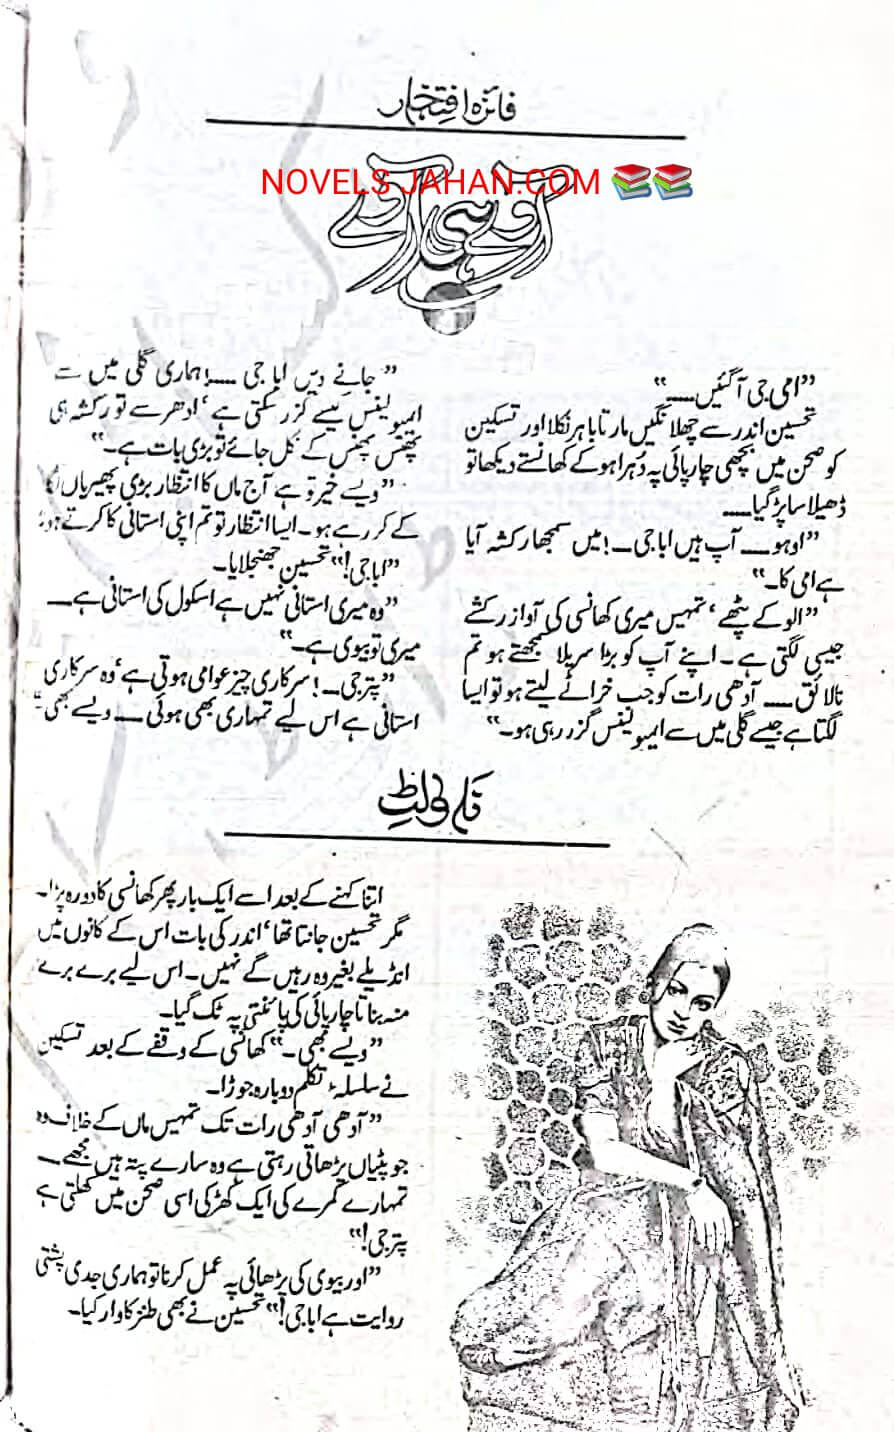 فائزہ افتخار
NOVELS JAHAN.COM
"امی جی آگئیں۔۔۔۔"
تحسین اندر سے چھلانگیں مارتا باہر نکلا اور تسکین
کو صحن میں بچھی چارپائی پہ دُہرا ہو کے کھانستے دیکھا تو
ڈھیلا سا پڑ گیا۔۔۔۔
"اوہو۔۔۔۔ آپ ہیں ابا جی۔۔۔! میں سمجھا رکشہ آیا
ہے امی کا۔"
"الو کے پٹھے' تمہیں میری کھانسی کی آواز رکشے
جیسی لگتی ہے۔ اپنے آپ کو بڑا سریلا سمجھتے ہو تم
نالائق۔۔۔۔ آدھی رات کو جب خراٹے لیتے ہو تو ایسا
لگتا ہے جیسے گلی میں سے ایمبولینس گزر رہی ہو۔"
"جانے دیں ابا جی ۔۔۔۔! ہماری گلی میں سے
ایمبولینس کیسے گزر سکتی ہے' ادھر سے تو رکشہ ہی
پھنس پھنس کے نکل جائے تو بڑی بات ہے۔"
"ویسے خیر تو ہے آج ماں کا انتظار بڑی پھیریاں لگا
کے کر رہے ہو۔ ایسا انتظار تو تم اپنی استانی کا کرتے ہو۔"
"ابا جی!" تحسین جھنجلایا۔
"وہ میری استانی نہیں ہے اسکول کی استانی ہے۔۔۔
میری تو بیوی ہے۔"
"پتر جی۔۔۔! سرکاری چیز عوامی ہوتی ہے' وہ سرکاری
استانی ہے اس لیے تمہاری بھی ہوئی ۔۔۔۔ ویسے بھی"
اتنا کہنے کے بعد اسے ایک بار پھر کھانسی کا دورہ پڑا۔
مگر تحسین جانتا تھا' اندر کی بات اس کے کانوں میں
انڈیلے بغیر وہ رہیں گے نہیں۔ اس لیے برے برے
منہ بناتا چارپائی کی پائنتی پہ ٹک گیا۔
"ویسے بھی۔" کھانسی کے وقفے کے بعد تسکین
نے سلسلۂ تکلم دوبارہ جوڑا۔
"آدھی آدھی رات تک تمہیں ماں کے خلاف وہ
جو پٹیاں پڑھاتی رہتی ہے وہ سارے پتہ ہیں مجھے۔۔۔
تمہارے کمرے کی ایک کھڑکی اسی صحن میں کھلتی ہے
پتر جی!"
"اور بیوی کی پڑھائی پہ عمل کرنا تو ہماری جدی پشتی
روایت ہے ابا جی!" تحسین نے بھی طنز کا وار کیا۔